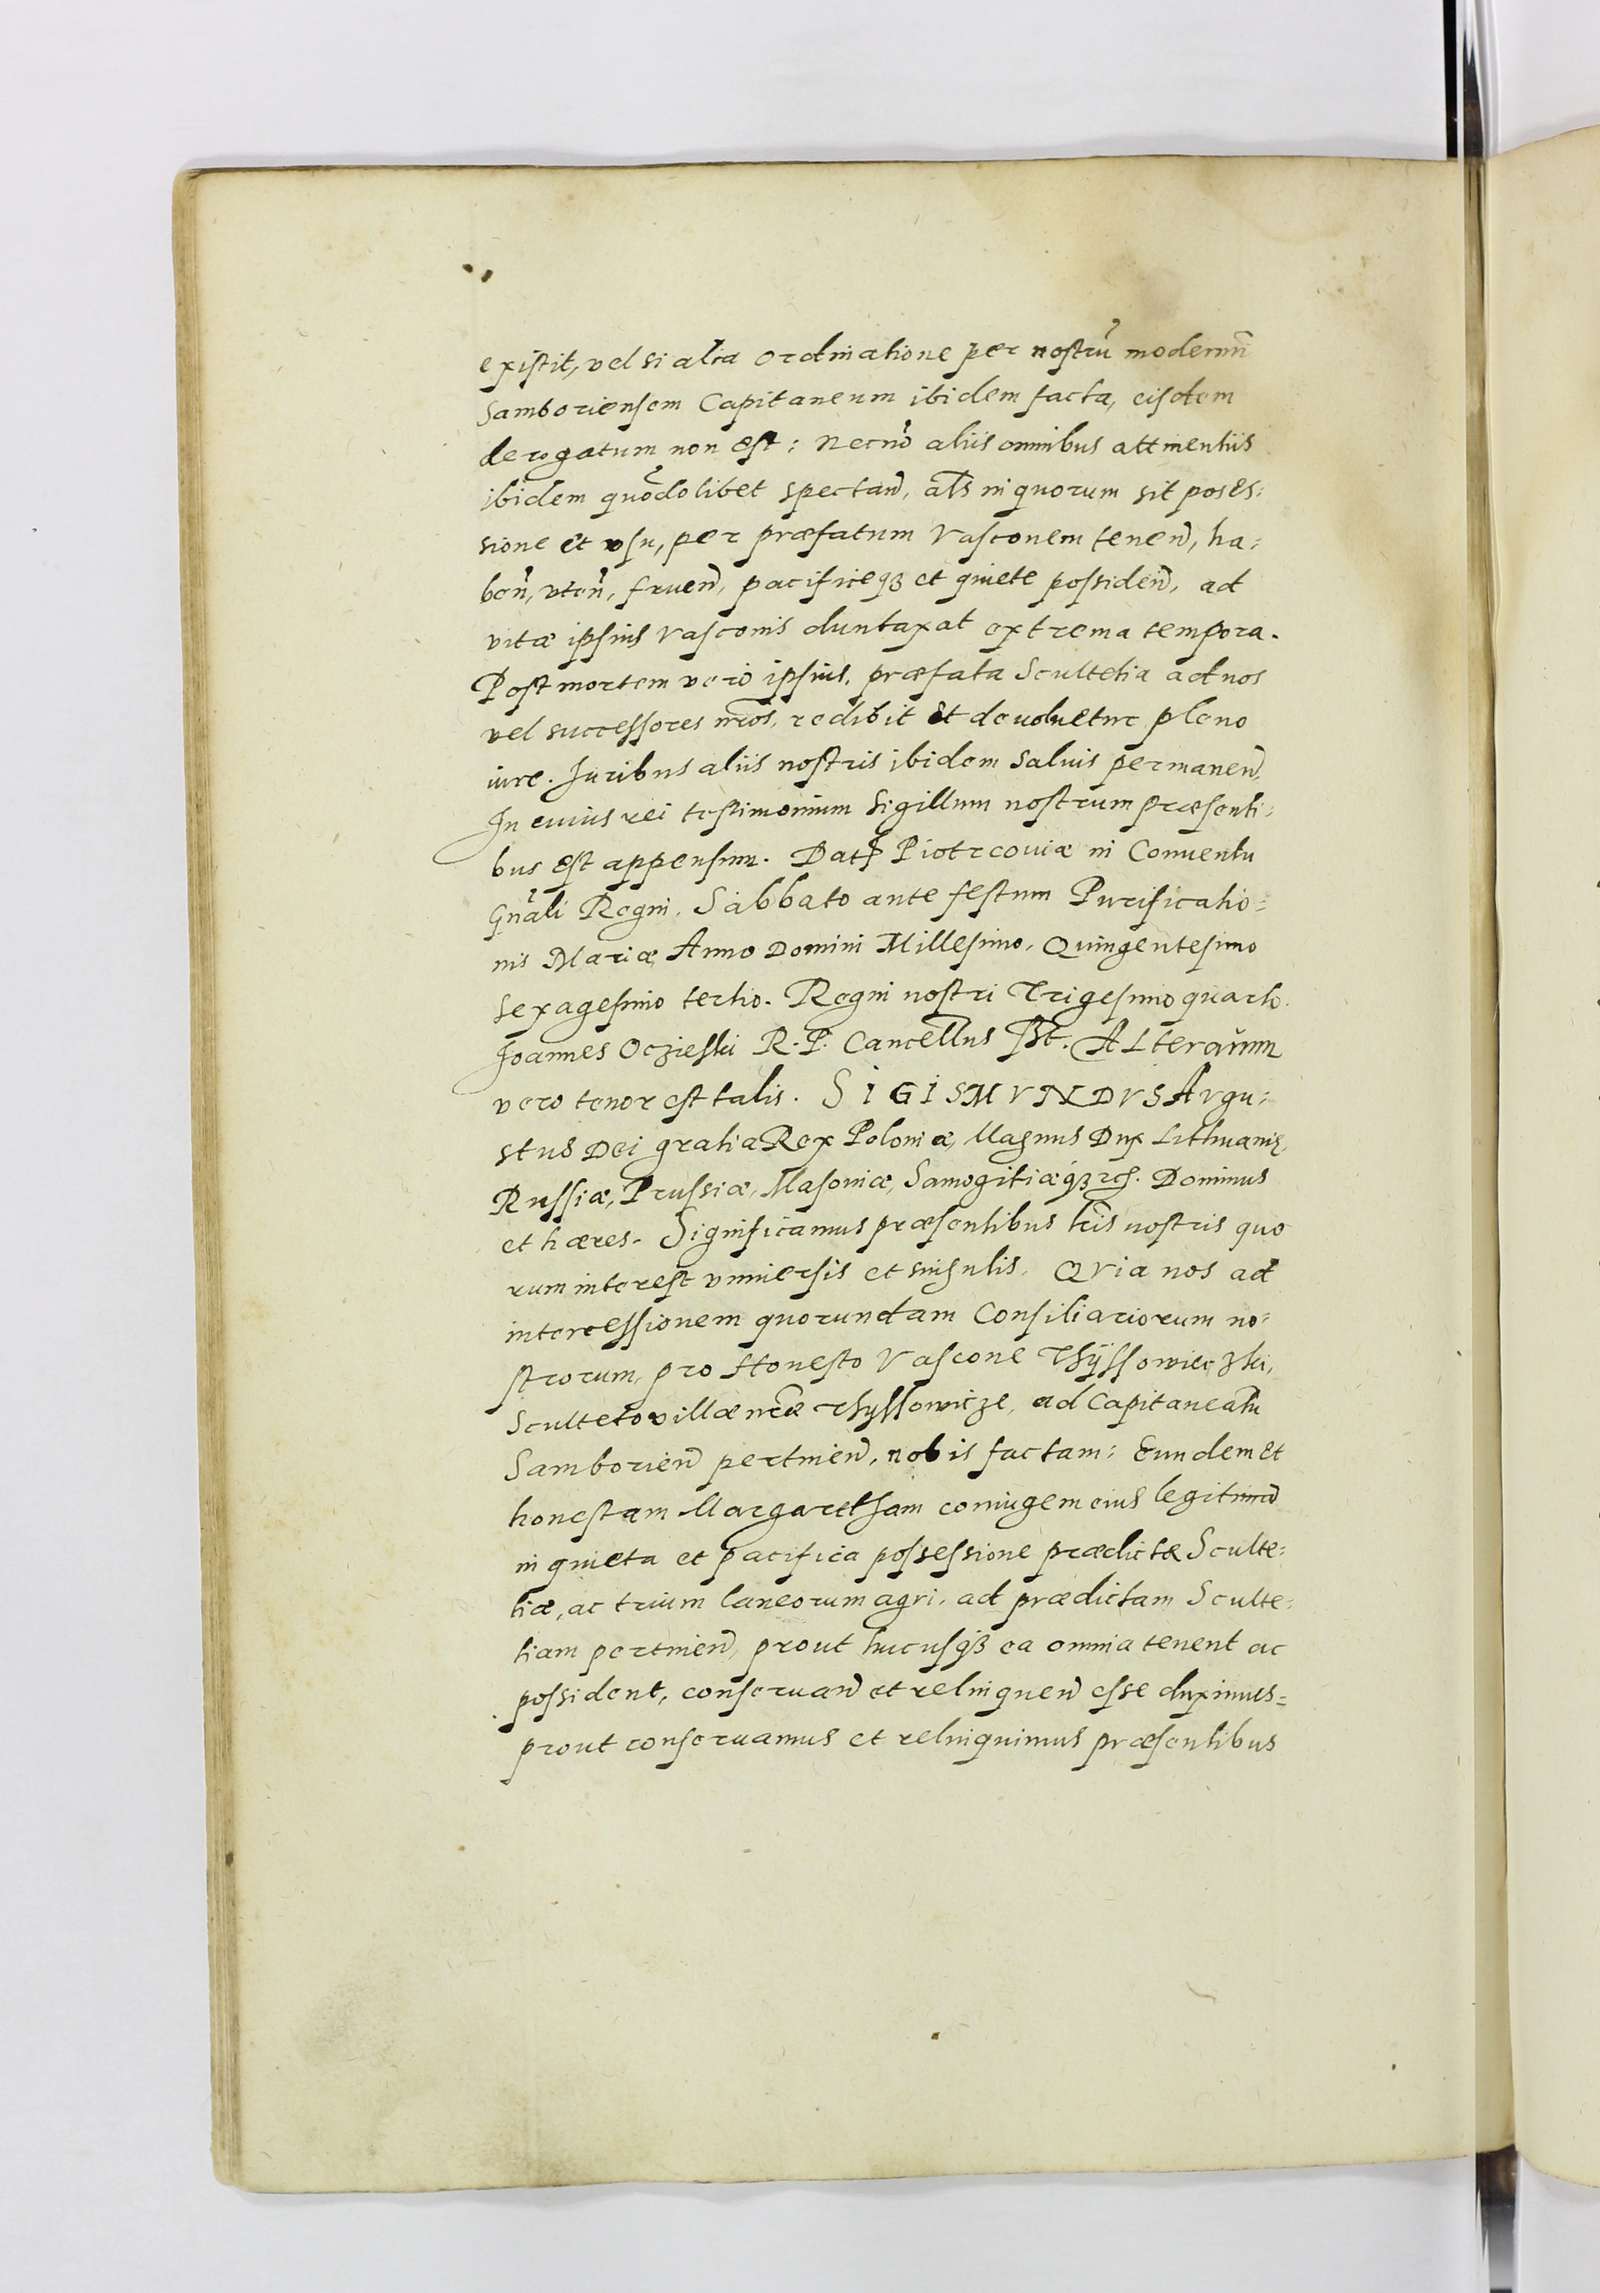 existit, vel si alia ordinatione per nostrũ modernũ
Samboriensem Capitaneum ibidem facta, eisdem
derogatum non est: necnõ aliis omnibus attinentiis
ibidem quõdolibet spectañ, als in quorum sit poses:
sione et vsu, per præfatum Vasconem teneñ, ha:
beñ, vteñ, frueñ, pacificeqꝫ et quiete possideñ, ad
vitæ ipsius Vasconis duntaxat extrema tempora.
Post mortem verò ipsius, præfata Scultetia ad nos
vel successores nr̃os, redibit et devoluetur pleno
iure. Juribus aliis nostris ibidem salvis permaneñ.
In cuius rei testimonium sigillum nostrum præsenti:
bus est appensum. Datꝭ Piotrcoviæ in Conventu
Gñali Regni, Sabbato ante festum Purificatio=
nis Mariæ Anno Domini Millesimo, Quingentesimo
sexagesimo tertio. Regni nostri Trigesimo quarto.
Joannes Oczieski R. P. Cancellus sst. ALterarum
vero tenor est talis. SIGISMVNDVS Avgu:
stus Dei gratia Rex Poloniæ, Magnus Dux Lithuanię,
Russiæ, Prussiæ, Masoviæ, Samogitiæqꝫ rc̃. Dominus
et hæres. Significamus præsentibus lr̃is nostris quo
rum interest vniversis et singulis. QVia nos ad
intercessionem quorundam Consiliariorum no:
strorum, pro Honesto Vascone Thÿssowieczki,
Sculteto villæ nr̃æ Thyssowicze, ad Capitaneatũ
Samborieñ pertineñ, nobis factam: Eundem et
honestam Margaretham coniugem eius legitimã
in quieta et pacifica possessione prædictæ Sculte:
tiæ, ac trium laneorum agri, ad prædictam Sculte:
tiam pertineñ, prout hucusqꝫ ea omnia tenent ac
possident, conseruañ et relinqueñ esse duximus=
prout conseruamus et relinquimus præsentibus